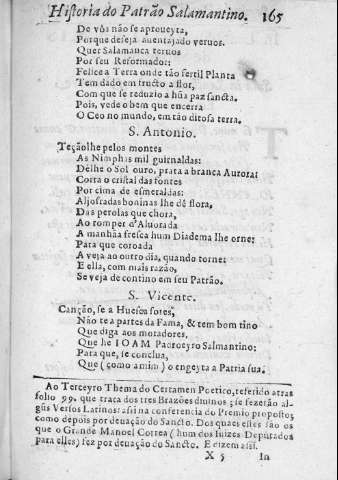 Hiſtoria do Patrão Salamantino. 165
De vós não ſe aproueyta,
Porque deſeja auentajado veruos.
Quer Salamanca teruos
Por ſeu Reformador:
Felice a Terra onde tão fertil Planta
Tem dado em fructo a flor,
Com que ſe reduzio a hũa paz ſancta.
Pois, vede o bem que encerra
O Ceo no mundo, em tão ditoſa terra.
S. Antonio.
Teçãolhe pelos montes
As Nimphas mil guirnaldas:
Dêlhe o Sol ouro, prata a branca Aurora:
Corra o criſtal das fontes
Por cima de eſmeraldas:
Aljofradas boninas lhe dê flora,
Das perolas que chora,
Ao romper d'Aluorada
A manhãa freſca hum Diadema lhe orne:
Para que coroada
A veja ao outro dia, quando torne:
E ella, com mais razão,
Se veja de contino em ſeu Patrão.
S. Vicente.
Canção, ſe a Hueſca fores,
Não te apartes da Fama, & tem bom tino
Que diga aos moradores,
Que lhe IOAM Padroeyro Salmantino:
Para que, ſe conclua,
Que (como amim) o engeyta a Patria ſua.
Ao Terceyro Thema do Certamen Poetico, referido atras
folio 99. que traça dos tres Brazões diuinos; ſe fezerão al-
gũs Verſos Latinos: aſsi na conferencia do Premio propoſto;
como depois por deuação do Sancto. Dos quaes eſtes ſão os
que o Grande Manoel Correa (hum dos Iuizes Deputados
para elles) fez por deuação do Sancto. E dizem aſsi.
X 5 In